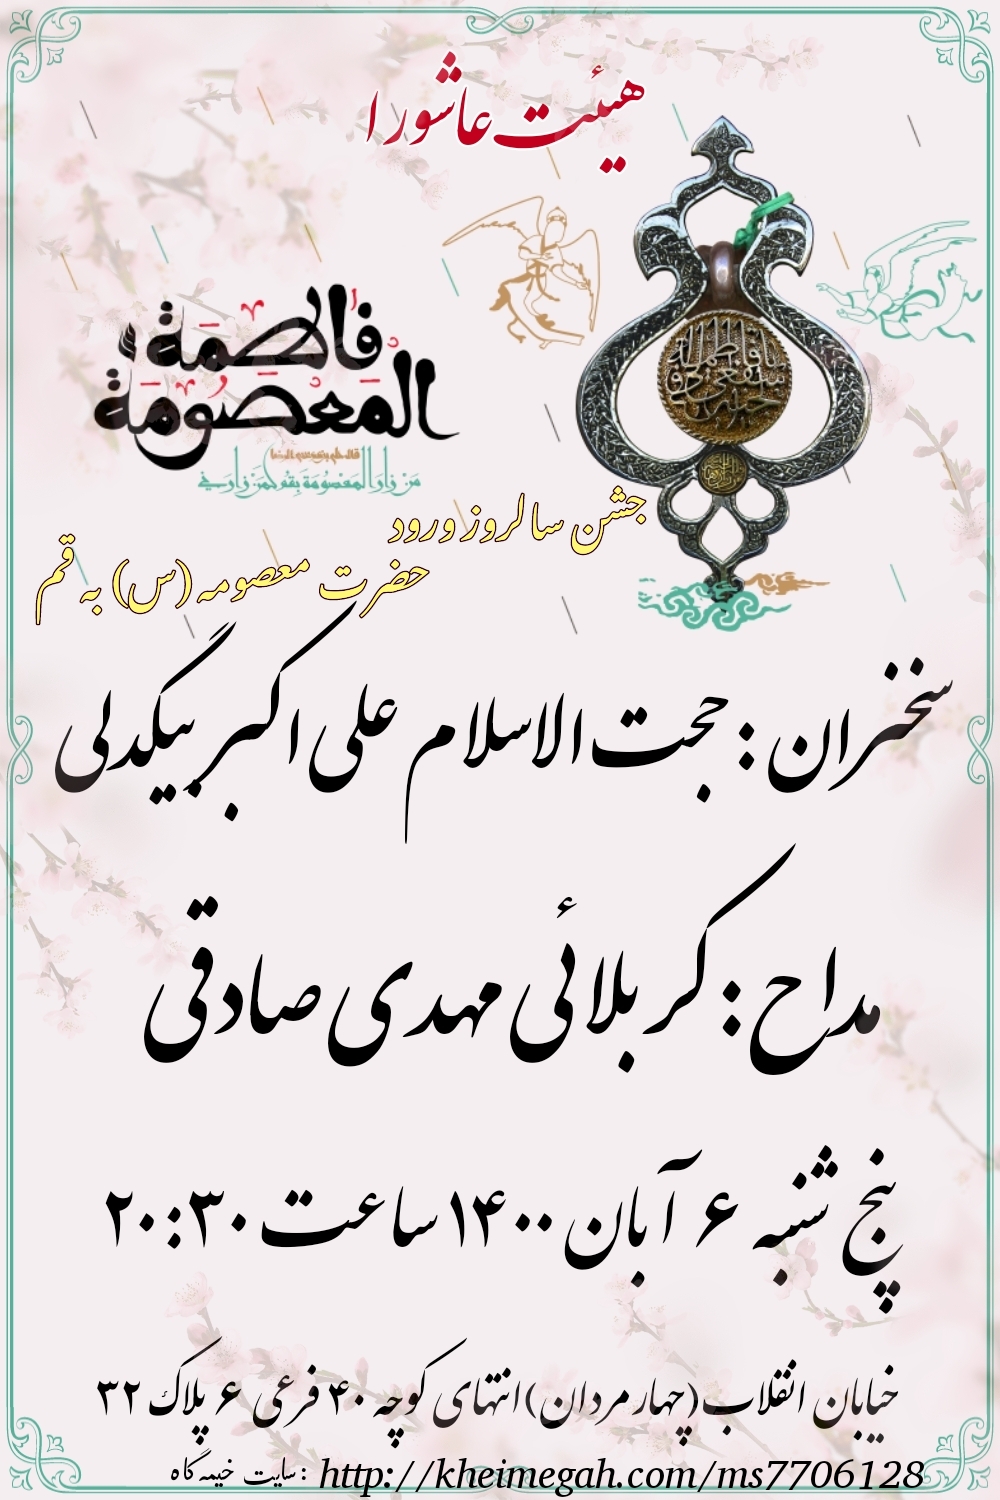 هیئت عاشورا
فاطمة
المعصومة
مَن زارَ المَعصُومَةَ بِقُم كَمَن زارَنی
جشن سالروز ورود
حضرت معصومه (س) به قم
سخنران : حجت الاسلام علی اکبر بیگدلی
مداح : کربلائی مهدی صادقی
پنج شنبه ۶ آبان ۱۴۰۰ ساعت ۲۰:۳۰
خیابان انقلاب (چهارمردان) انتهای کوچه ۴۰ فرعی ۶ پلاک ۳۲
سایت خیمه گاه : http://kheimegah.com/ms7706128